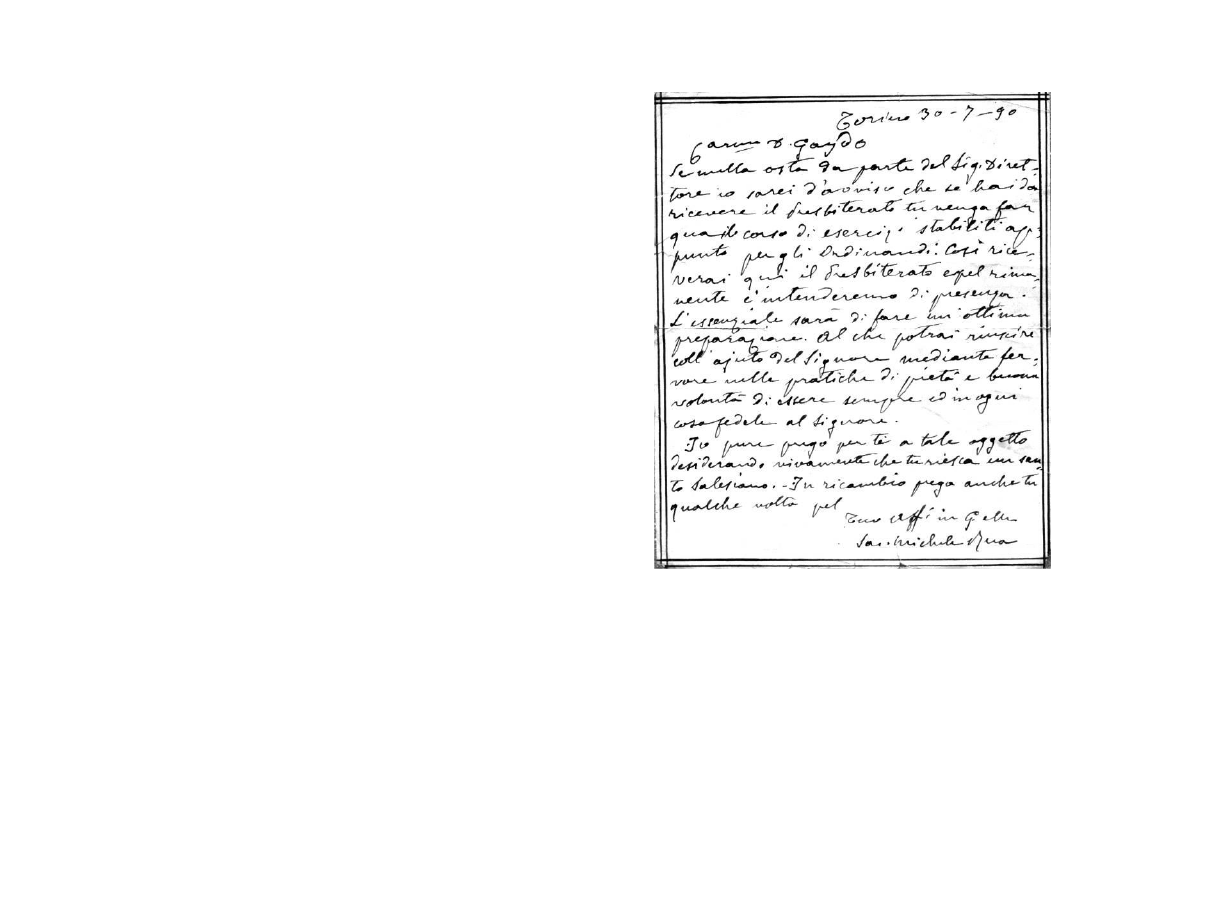 Torino 30-7-90
Carmo D. Gaydo
Se nulla osta da parte del Sig. Diret-
tore io sarei d'avviso che se hai da
ricevere il Presbiterato tu venga far
qua il corso di esercizi stabiliti ap-
punto per gli Ordinandi. Così rice-
verai qui il Presbiterato e pel rima-
nente c'intenderemo di presenza.
L'essenziale sarà di fare un'ottima
preparazione. Al che potrai riuscire
coll'ajuto del Signore mediante fer-
vore nelle pratiche di pietà e buona
volontà di essere sempre ed in ogni
cosa fedele al Signore.
Io pure prego per te a tale oggetto
desiderando vivamente che tu riesca un san-
to Salesiano. - In ricambio prega anche tu
qualche volta pel
Tuo Aff. in G. e M.
Sac. Michele Rua